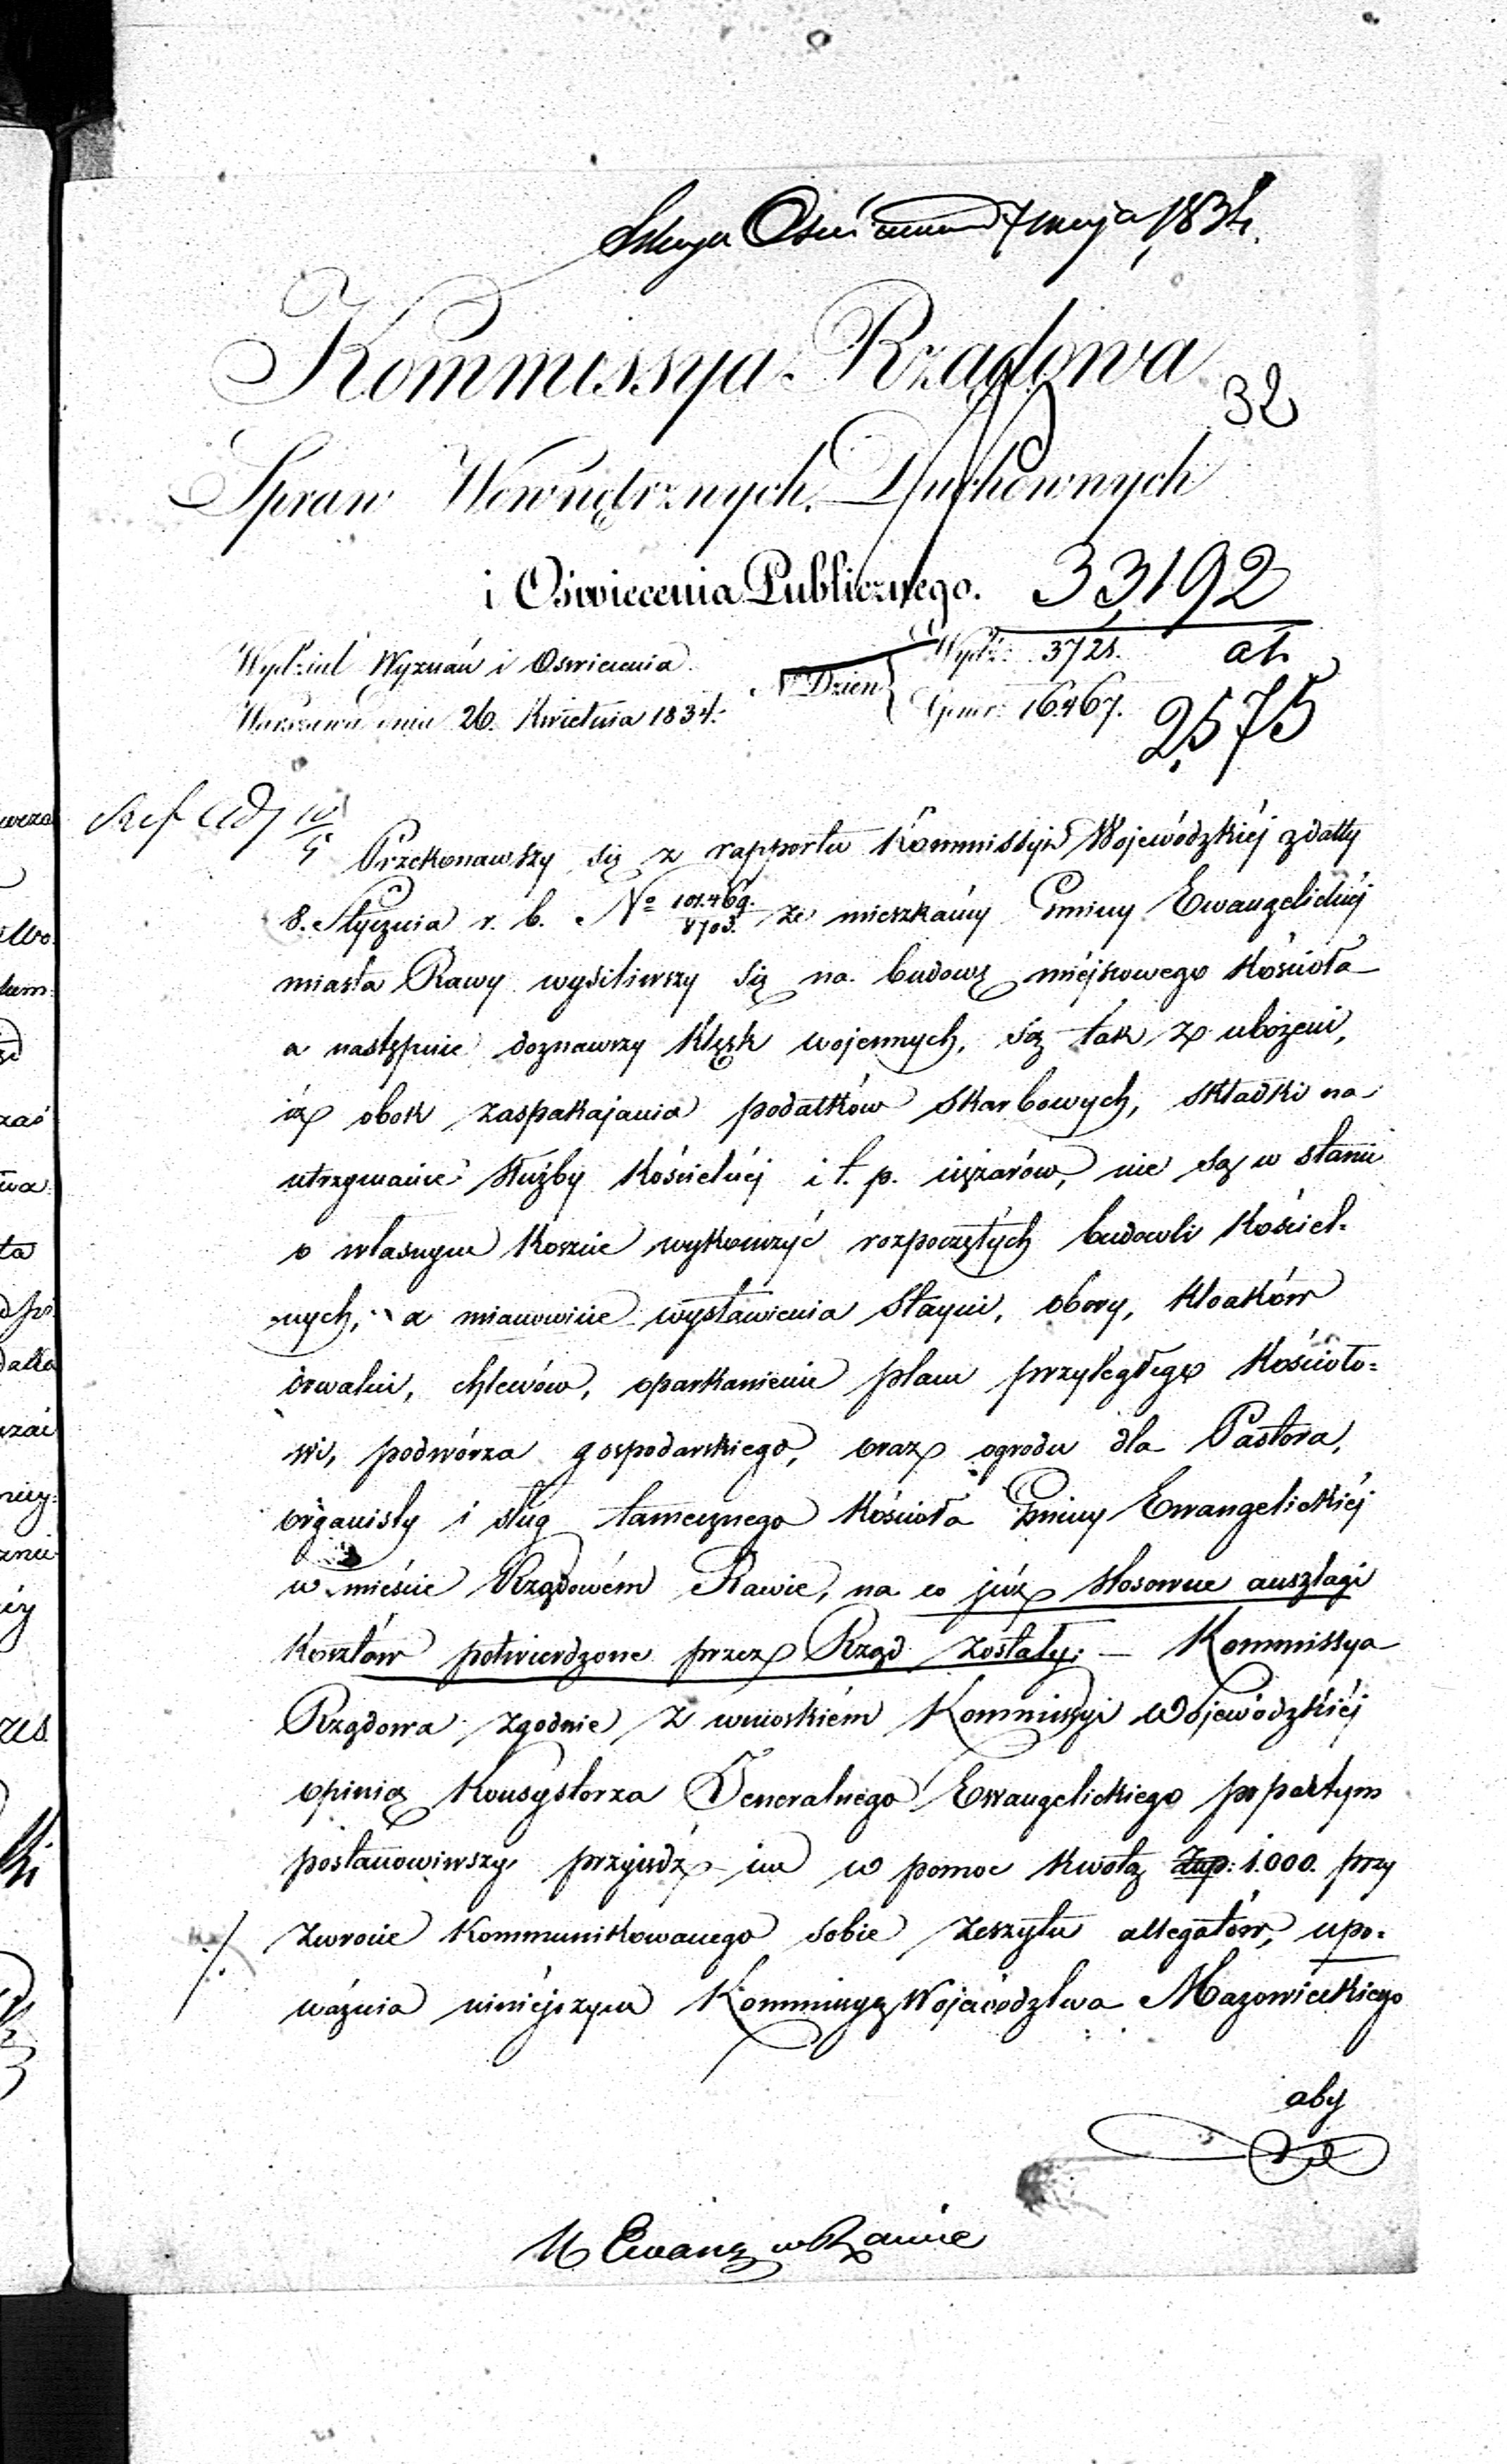 7 maja 1834.
Kommissya Rządowa
32
Spraw Wewnętrznych, Duchownych
i Oświecenia Publicznego. 33,192
Wydział Wyznań i Oswiecenia. N Dzien Wydz: 3728.
Warszawa dnia 26. Kwietnia 1834. Gener: 16467. 2575
Przekonawszy się z rapportu Kommissyi Wojewódzkiéj z datty
8. Stycznia r. b. No 101.469./8703. że mieszkańcy Gminy Ewangelickiéj
miasta Rawy wysiliwszy się na budowę miéjscowego Kościoła
a następnie doznawszy klęsk wojennych, są tak zubożeni,
iż obok zaspakajania podatków Skarbowych, składki na
utrzymanie Służby Kościelnéj i t. p. ciężarów, nie są w stanie
o własnym koszcie wykończyć rozpoczętych budowli Kościel-
nych, a mianowicie wystawienia Stayni, obory, kloaków
drwalni, chlewów, oparkanienie placu przyległego Kościoło=
wi, podwórza gospodarskiego, oraz ogrodu dla Pastora,
organisty i sług tamecznego Kościoła Gminy Ewangelickiéj
w mieście Rządowém Rawie, na co już stosowne auszlagi
kosztów potwierdzone przez Rząd zostały; — Kommissya
Rządowa zgodnie z wnioskiém Kommissyi Wojewódzkiéj
opinią Konsystorza Generalnego Ewangelickiego popartym
postanowiwszy przyjśdź im w pomoc kwotą Złp: 1.000. przy
./. zwrocie kommunikowanego sobie zeszytu allegatów, upo=
ważnia niniéjszym Kommissyą Województwa Mazowieckiego
aby
Ewang w Rawie